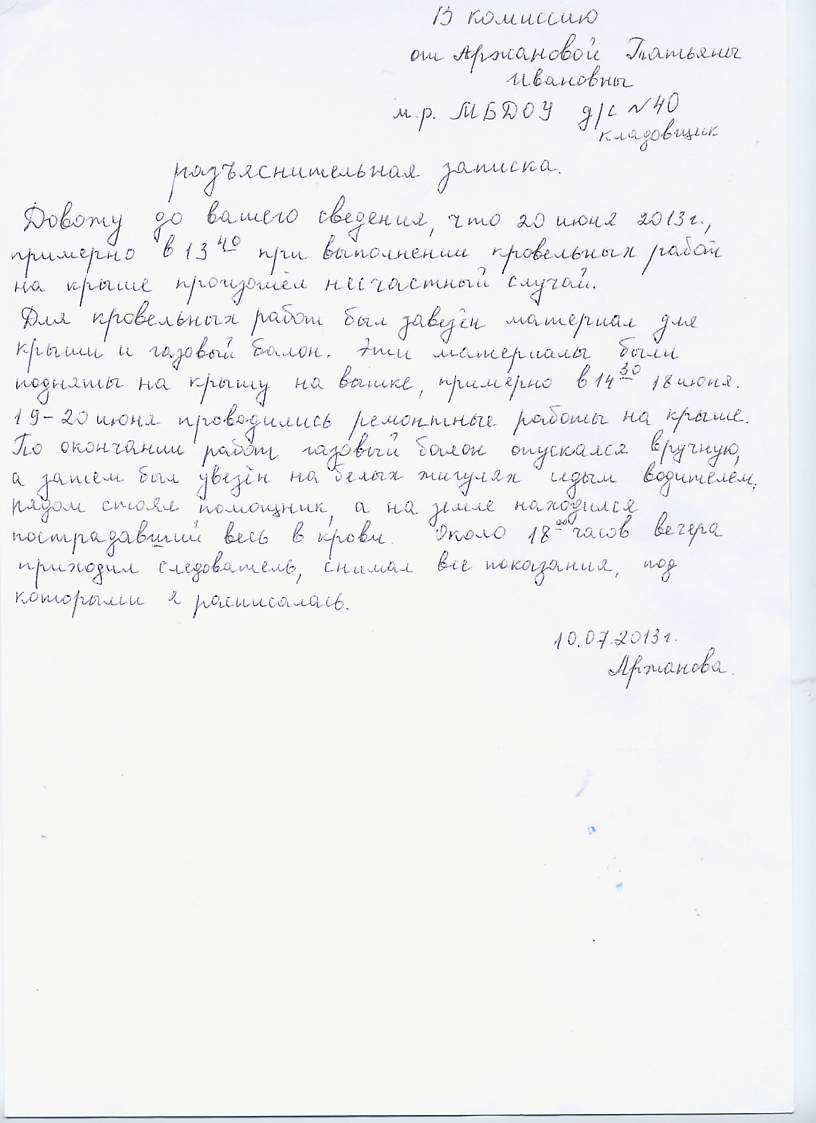 В комиссию
от Аржановой Татьяны
Ивановны
м.р. МБДОУ д/с №40
кладовщик
разъяснительная записка.
Довожу до вашего сведения, что 20 июня 2013г.,
примерно в 13 40 при выполнении кровельных работ
на крыше произошёл несчастный случай.
Для кровельных работ был завезён материал для
крыши и газовый балон. Эти материалы были
подняты на крышу на вышке, примерно в 14 30 18 июня.
19-20 июня проводились ремонтные работы на крыше.
По окончании работ газовый балон опускался вручную,
а затем был увезён на белых жигулях седым водителем,
рядом стоял помощник, а на земле находился
пострадавший весь в крови. Около 18 00 часов вечера
приходил следователь, снимал все показания, под
которыми я расписалась.
10.07.2013г.
Аржанова.